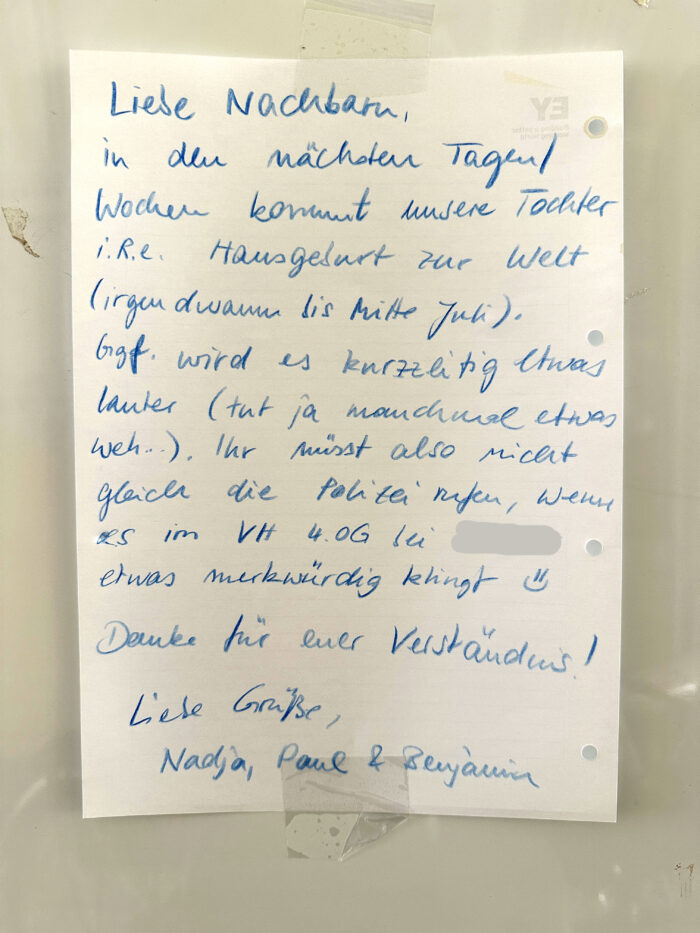 Liebe Nachbarn,
in den nächsten Tagen/
Wochen kommt unsere Tochter
i.R.e. Hausgeburt zur Welt
(irgendwann bis Mitte Juli).
Ggf. wird es kurzzeitig etwas
lauter (tut ja manchmal etwas
weh...). Ihr müsst also nicht
gleich die Polizei rufen, wenn
es im VH 4.OG bei
etwas merkwürdig klingt
Danke für euer Verständnis!
Liebe Grüße,
Nadja, Paul & Benjamin
EY
Building a better
working world